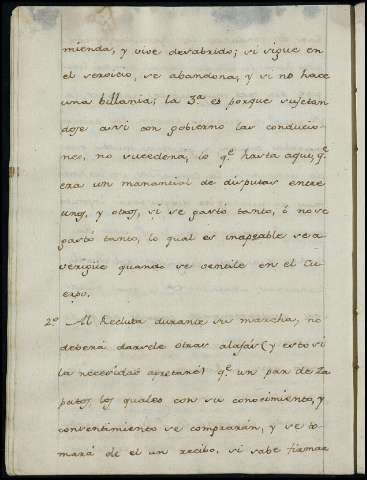 mienda, y vive desabrido; si sigue en
el servicio, se abandona, y si no hace
una billania; la 3.ª es porque sujetan
dose assi con govierno las conducio
nes, no sucederá, lo q.e hasta aqui, q.e
era un manantial de disputas entre
unos, y otros, si se gastó tanto, ó no se
gastó tanto, lo qual es inapeable se a
verigüe quando se ventile en el Cu
erpo.
2.º Al Recluta durante su marcha, no
deberá darsele otras alajas (y esto si
la necesidad apretare) q.e un par de Za
patos, los quales con su conocimiento, y
consentimiento se comprarán, y se to
mará de el un recibo, si sabe firmar